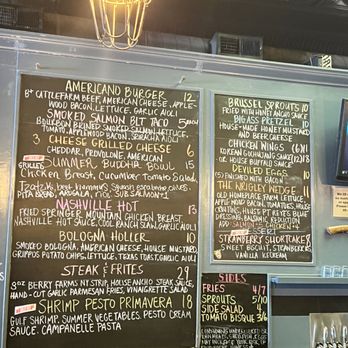 AMERICANO BURGER 12
8oz CATTLEFARM BEEF, AMERICAN CHEESE, APPLE-
WOOD BACON, LETTUCE, GARLIC AIOLI
SMOKED SALMON BLT TACO 5
BOURBON BRINED SMOKED SALMON, LETTUCE,
TOMATO, APPLEWOOD BACON, SRIRACHA AIOLI
3 CHEESE GRILLED CHEESE 6
CHEDDAR, PROVOLONE, AMERICAN
GRILLED SUMMER BUDDHA BOWL 15
Chicken Breast, Cucumber Tomato Salad,
Tzatziki, beet hummus,
PITA BREAD, ARUGULA,
NASHVILLE HOT 13
FRIED SPRINGER MOUNTAIN CHICKEN BREAST,
NASHVILLE HOT SAUCE, COOL RANCH SLAW, GARLIC AIOLI
BOLOGNA HOLLER 10
SMOKED BOLOGNA, AMERICAN CHEESE, HOUSE MUSTARD,
GRIPPOS POTATO CHIPS, LETTUCE, TEXAS TOAST, GARLIC AIOLI
STEAK & FRITES 29
8oz BERRY FARMS NY STRIP, HOUSE ANCHO STEAK SAUCE,
HAND-CUT GARLIC PARMESAN FRIES, VINAIGRETTE SALAD
SHRIMP PESTO PRIMAVERA 18
GULF SHRIMP, SUMMER VEGETABLES, PESTO CREAM
SAUCE, CAMPANELLE PASTA
BRUSSEL SPROUTS 10
FRIED WITH HONEY ANCHO SAUCE
BIGASS PRETZEL 10
HOUSE-MADE HONEY MUSTARD
AND BEER CHEESE
CHICKEN WINGS (6)
KOREAN GOCHUJANG SAUCE
OR HOUSE BUFFALO SAUCE
DEVILED EGGS
(5) FINISHED WITH BACON
THE WRIGLEY WEDGE 11
HOUSE HAMMERED LETTUCE,
APPLE WOOD BACON, TOMATOES, HOUSE
CROUTONS, HOUSE PT REYES BLUE
DRESSING, BALSAMIC REDUCTION
ADD SALMON/CHICKEN
DESSERT
STRAWBERRY SHORTCAKE
SWEET BISCUITS, STRAWBERRIES,
VANILLA ICE CREAM
SIDES
FRIES 4/7
SPROUTS 5/10
SIDE SALAD 4
TOMATO BISQUE 3/6